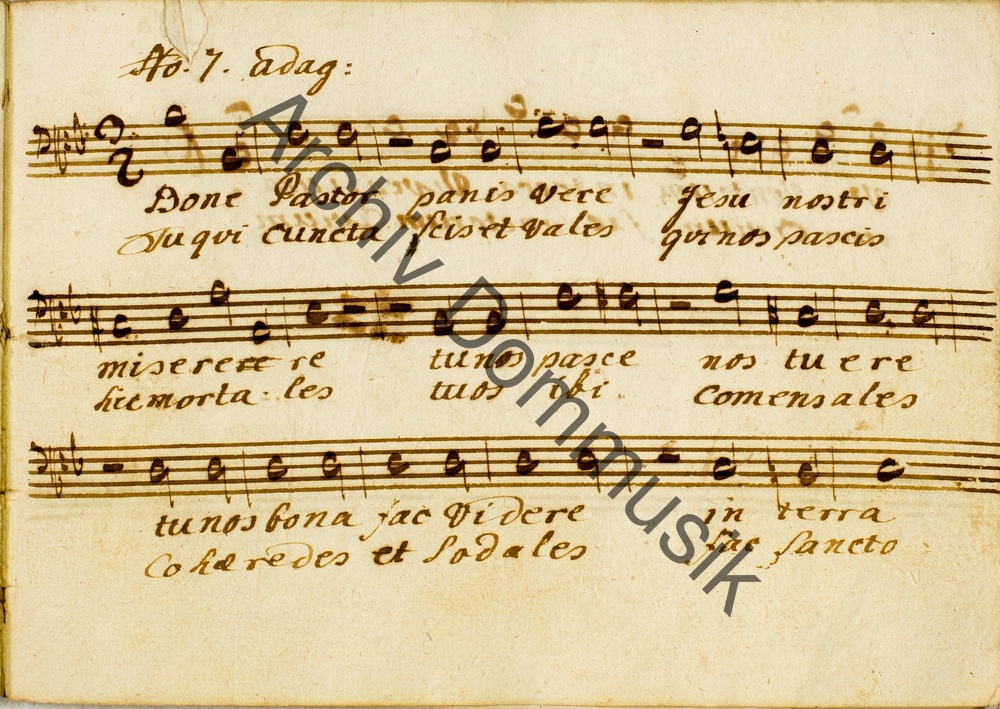 No. 7. adag:
Bone Pastor panis vere Jesu nostri
Tu qui cuncta scis et vales qui nos pascis
miserere re tu nos pasce nos tuere
hic morta les tuos ibi Comensales
tu nos bona fac videre in terra
Cohæredes et Sodales fac Sancto
Archiv Dommusik